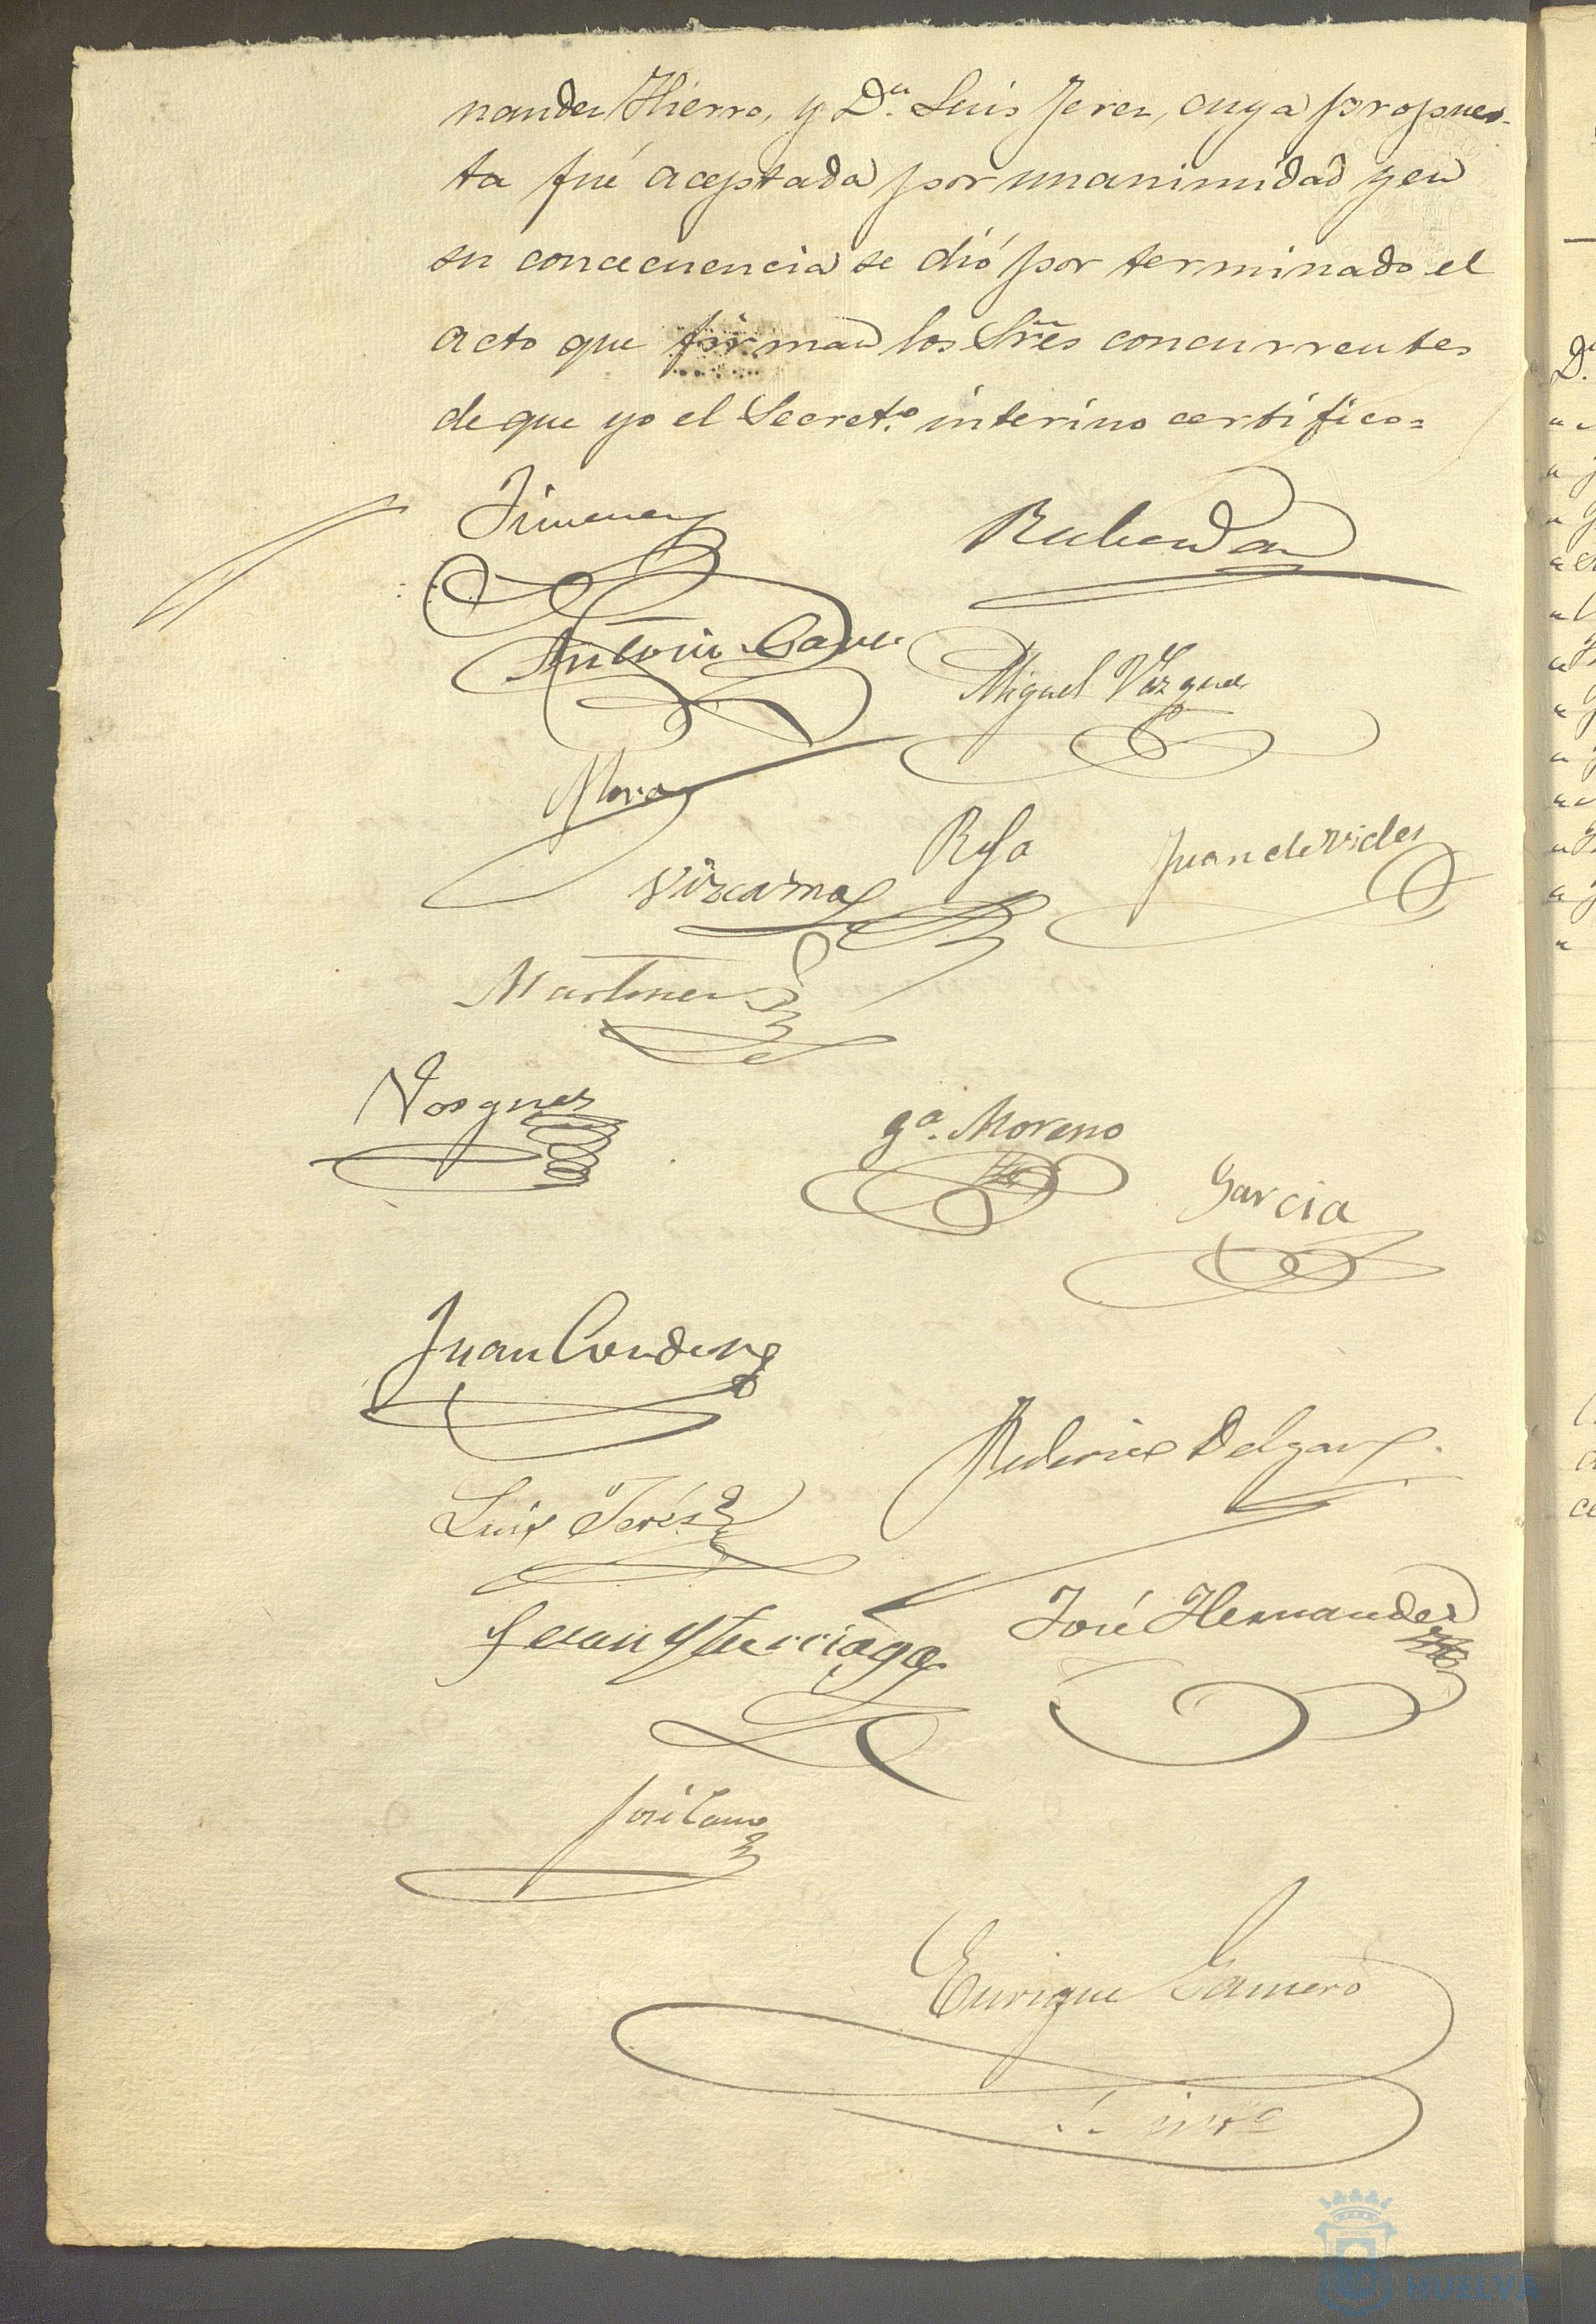 nandez Hierro, y Dn. Luis Jerez, cuya propues-
ta fué aceptada por unanimidad y en
su concecuencia se dió por terminado el
acto que firman los Sres concurrentes
de que yo el Secreto. interino certifico=
Jimenez
Antonio
Miguel Vazquez
Mora
Juan de Vides
Vizcaino
Martinez
Vazquez
Ga. Moreno
Garcia
Juan
Federico Delgado
Luis Jeréz
José Hernandez
José Cano
Enrique Gamero
HUELVA